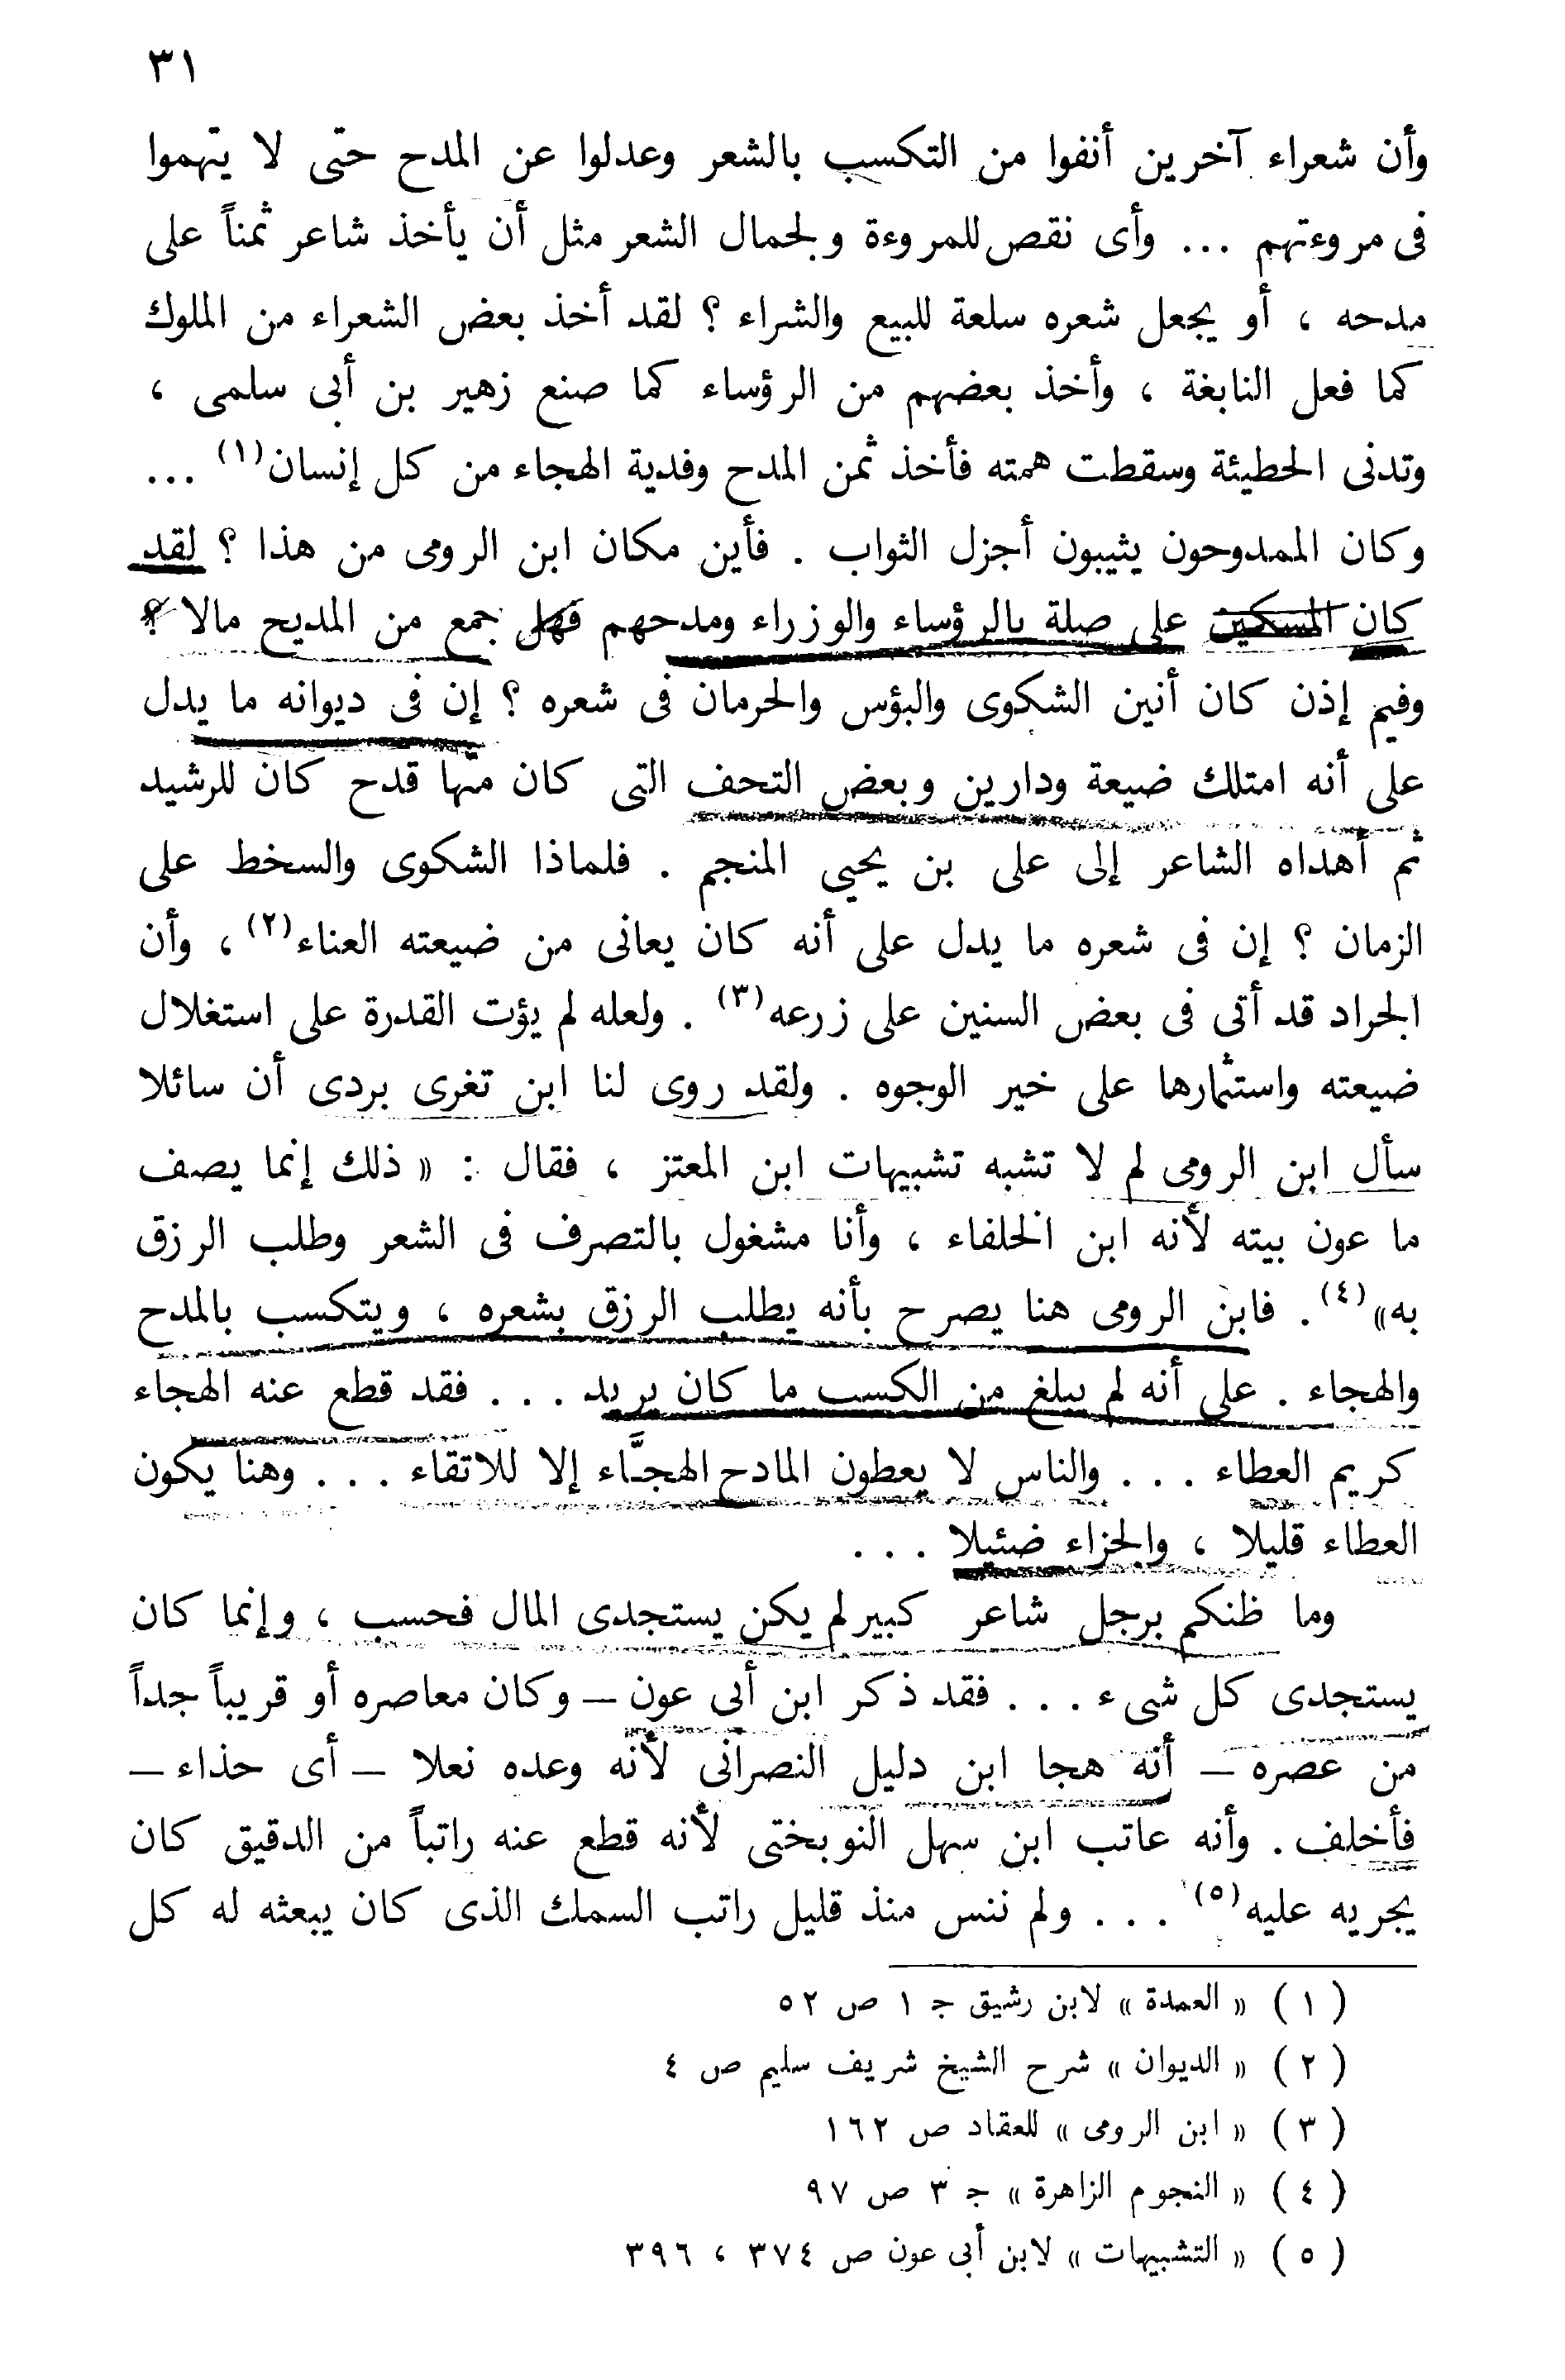 ٣١
وأن شعراء آخرين أنفوا من التكسب بالشعر وعدلوا عن المدح حتى لا يتهموا
فى مروءتهم ... وأى نقص للمروءة ولجمال الشعر مثل أن يأخذ شاعر ثمناً على
مدحه ، أو يجعل شعره سلعة للبيع والشراء ؟ لقد أخذ بعض الشعراء من الملوك
كما فعل النابغة ، وأخذ بعضهم من الرؤساء كما صنع زهير بن أبى سلمى ،
وتدنى الحطيئة وسقطت همته فأخذ ثمن المدح وفدية الهجاء من كل إنسان(١) ...
وكان الممدوحون يثيبون أجزل الثواب . فأين مكان ابن الرومى من هذا ؟ لقد
كان المسكين على صلة بالرؤساء والوزراء ومدحهم فهل جمع من المديح مالا ؟
وفيم إذن كان أنين الشكوى والبؤس والحرمان فى شعره ؟ إن فى ديوانه ما يدل
على أنه امتلك ضيعة ودارين وبعض التحف التى كان منها قدح كان للرشيد
ثم أهداه الشاعر إلى على بن يحيى المنجم . فلماذا الشكوى والسخط على
الزمان ؟ إن فى شعره ما يدل على أنه كان يعانى من ضيعته العناء(٢) ، وأن
الجراد قد أتى فى بعض السنين على زرعه(٣) . ولعله لم يؤت القدرة على استغلال
ضيعته واستثمارها على خير الوجوه . ولقد روى لنا ابن تغرى بردى أن سائلا
سأل ابن الرومى لم لا تشبه تشبيهات ابن المعتز ، فقال : « ذلك إنما يصف
ما عون بيته لأنه ابن الخلفاء ، وأنا مشغول بالتصرف فى الشعر وطلب الرزق
به»(٤) . فابن الرومى هنا يصرح بأنه يطلب الرزق بشعره ، ويتكسب بالمدح
والهجاء . على أنه لم يبلغ من الكسب ما كان يريد . . . فقد قطع عنه الهجاء
كريم العطاء . . . والناس لا يعطون المادح الهجَّاء إلا للاتقاء . . . وهنا يكون
العطاء قليلا ، والجزاء ضئيلا . . .
وما ظنكم برجل شاعر كبير لم يكن يستجدى المال فحسب ، وإنما كان
يستجدى كل شىء . . . فقد ذكر ابن أبى عون – وكان معاصره أو قريباً جداً
من عصره – أنه هجا ابن دليل النصرانى لأنه وعده نعلا – أى حذاء –
فأخلف . وأنه عاتب ابن سهل النوبختى لأنه قطع عنه راتباً من الدقيق كان
يجريه عليه(٥) . . . ولم ننس منذ قليل راتب السمك الذى كان يبعثه له كل
( ١ ) « العمدة » لابن رشيق ج ١ ص ٥٢
( ٢ ) « الديوان » شرح الشيخ شريف سليم ص ٤
( ٣ ) « ابن الرومى » للعقاد ص ١٦٢
( ٤ ) « النجوم الزاهرة » ج ٣ ص ٩٧
( ٥ ) « التشبيهات » لابن أبى عون ص ٣٧٤ ، ٣٩٦